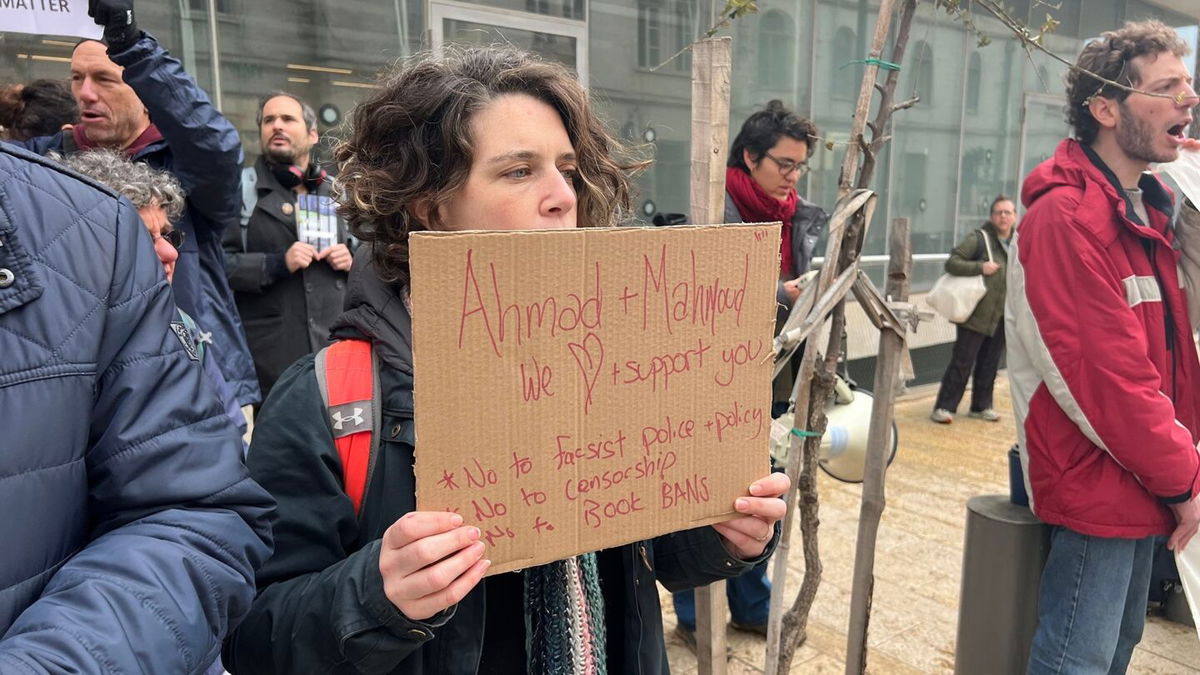 MATTER
Ahmad + Mahmoud
We ♡ + support you
* No to facsist police + policy
* No to censorship
* No to Book BANS